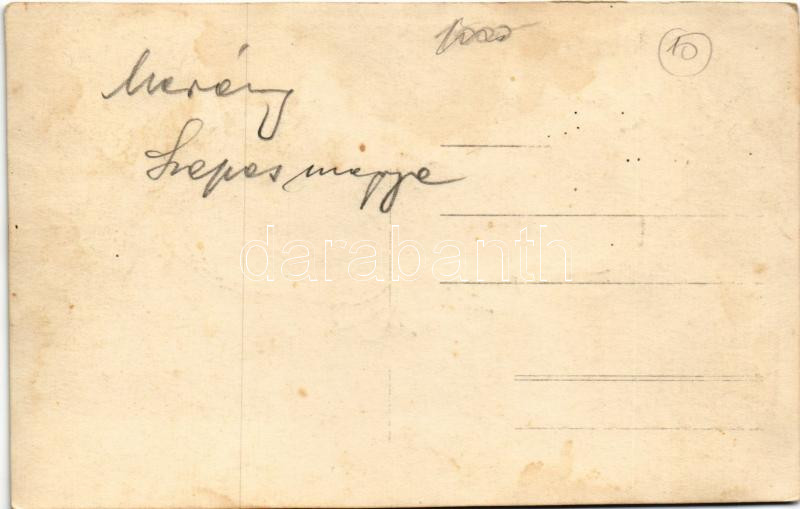 10
Merény
Szepes megye
darabanth